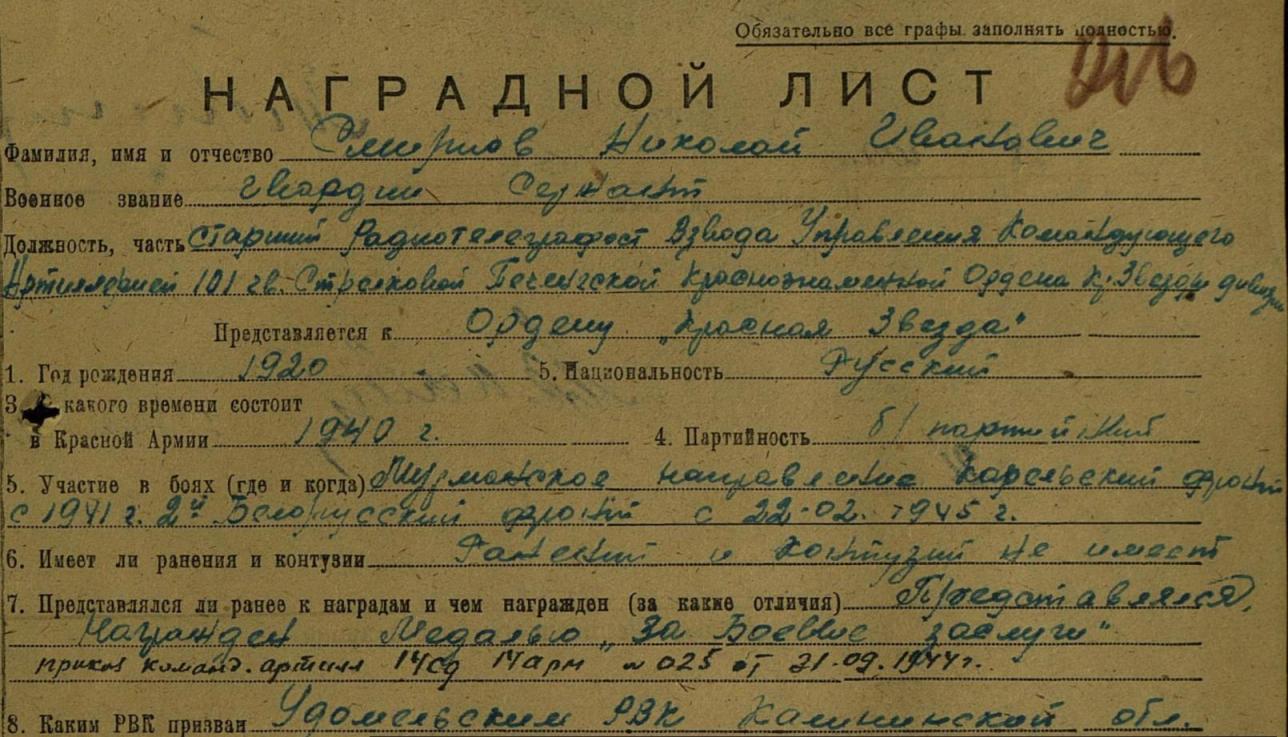 Обязательно все графы заполнять полностью.
НАГРАДНОЙ ЛИСТ
Фамилия, имя и отчество Смирнов Николай Иванович
Военное звание Гвардии Сержант
Должность, часть Старший Радиотелеграфист Взвода Управления Командующего
Артиллерией 101 гв. Стрелковой Печенгской Краснознаменной Ордена Кр. Звезды дивизии
Представляется к Ордену "Красная Звезда"
1. Год рождения 1920 5. Национальность Русский
3. С какого времени состоит
в Красной Армии 1940 г. 4. Партийность б/партийный
5. Участие в боях (где и когда) Мурманское направление Карельский фронт
с 1941 г. 2й Белорусский фронт с 22-02. 1945 г.
6. Имеет ли ранения и контузии Ранений и Контузий не имеет
7. Представлялся ли ранее к наградам и чем награжден (за какие отличия) Представлялся,
Награжден Медалью "За Боевые заслуги"
приказ команд. артилл 14сд 14арм №025 от 21.09.1944г.
8. Каким РВК призван Удомельским РВК Калининской обл.